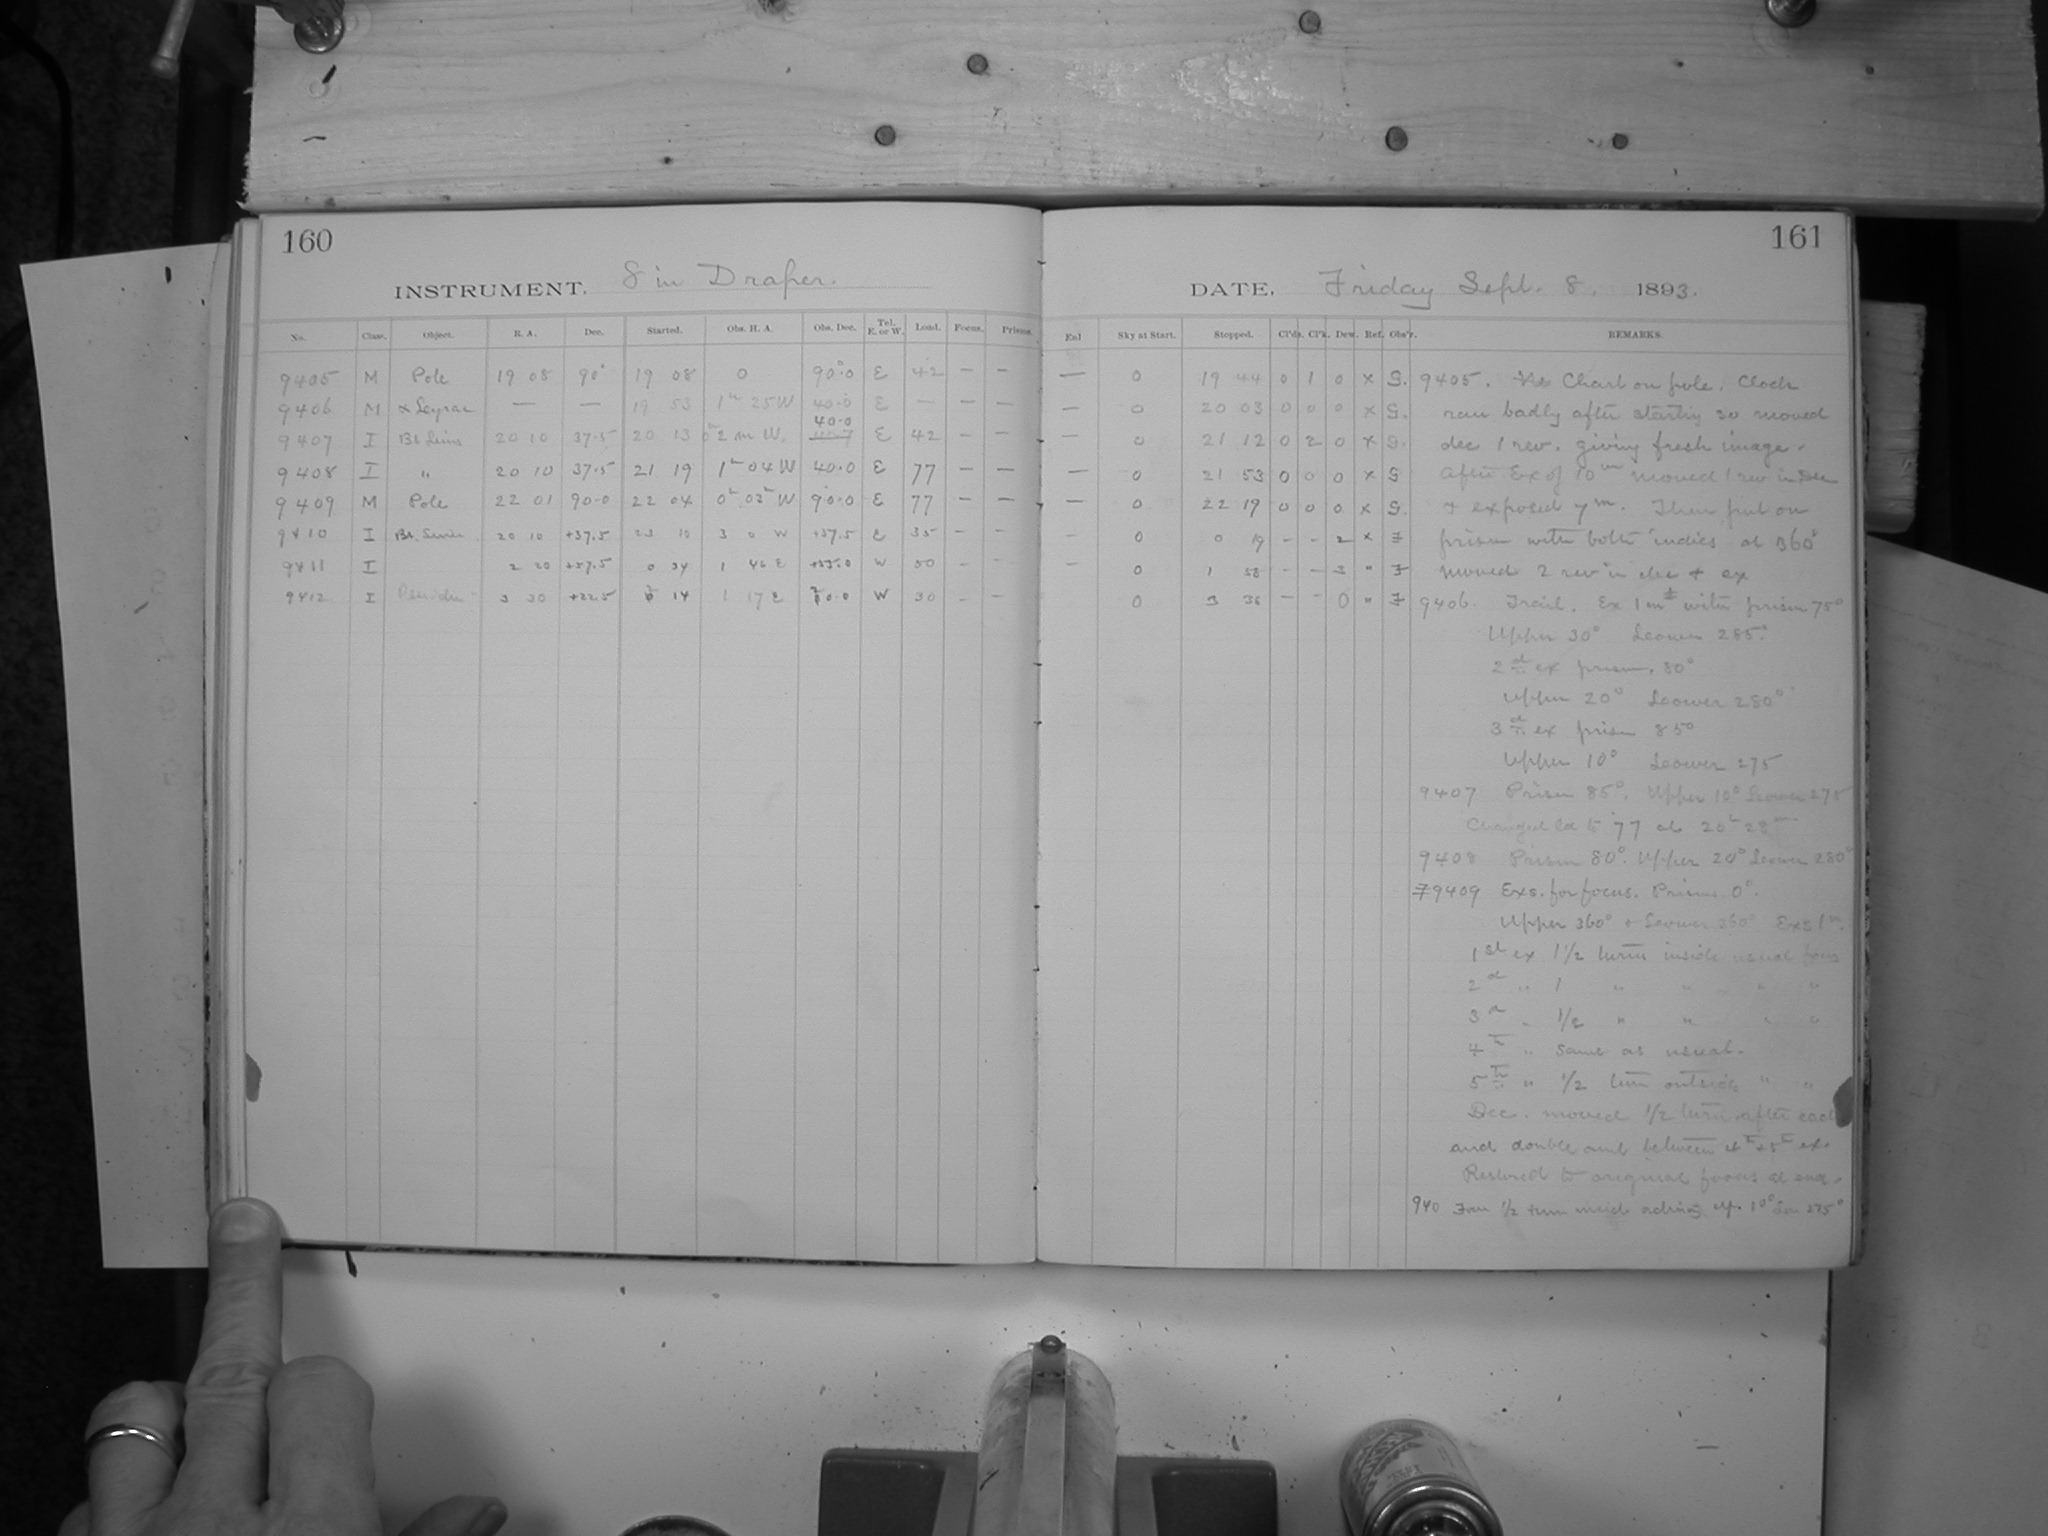 160
INSTRUMENT. 8 in Draper.
No. Class. Object. R. A. Dec. Started. Obs. H. A. Obs. Dec. Tel. E. or W. Load. Focus. Prisms.
9405 M Pole 19 08 90° 19 08 0 90.0 E 42 — —
9406 M α Lyrae — — 19 53 1h 25 W 40.0 E — — —
40.0
9407 I Br. Lines 20 10 37.5 20 13 2 m W. E 42 - -
9408 I " 20 10 37.5 21 19 1h 04 W 40.0 E 77 — —
9409 M Pole 22 01 90.0 22 04 0h 03 W 90.0 E 77 — —
9410 I Br. Lines 20 10 +37.5 23 10 3 0 W +37.5 E 35 - -
9411 I 2 20 +37.5 0 34 1 46 E W 50 - -
9412 I 3 30 +22.5 14 1 17 E W 30 - -
161
DATE. Friday Sept. 8. 1893.
Enl Sky at Start. Stopped. Cl'ds. Cl'k. Dew. Ref. Obs'r. REMARKS.
— 0 19 44 0 1 0 x G. 9405. Chart on pole. Clock
— 0 20 03 0 0 0 x G. ran badly after starting so moved
— 0 21 12 0 2 0 x G. dec 1 rev. giving fresh image.
— 0 21 53 0 0 0 x G After Ex of 10m moved 1 rev in Dec
— 0 22 19 0 0 0 x G. + exposed 7m. Then put on
- 0 0 19 - - 2 x F prism with both indices at 360°
- 0 1 58 - - 3 " F moved 2 rev in dec + ex
0 3 36 - - 0 " F 9406. Trail. Ex 1m with prism 75°
Upper 30° Lower 285°.
2d ex prism. 80°
Upper 20° Lower 280°
3d ex prism 85°
Upper 10° Lower 275
9407 Prism 85°. Upper 10° Lower 275
Changed to 77 at 20h 28m
9408 Prism 80°. Upper 20° Lower 280°
9409 Exs. for focus. Prisms 0°.
Upper 360° + Lower 360° Exs 1m.
1st ex 1 1/2 turn inside usual focus
2d " 1 " " " "
3d " 1/2 " " " "
4th " same as usual.
5th " 1/2 turn outside " "
Dec. moved 1/2 turn after each
and double amt between 4th + 5th ex.
Restored to original focus at end.
940 1/2 turn inside up. 10° Low 275°